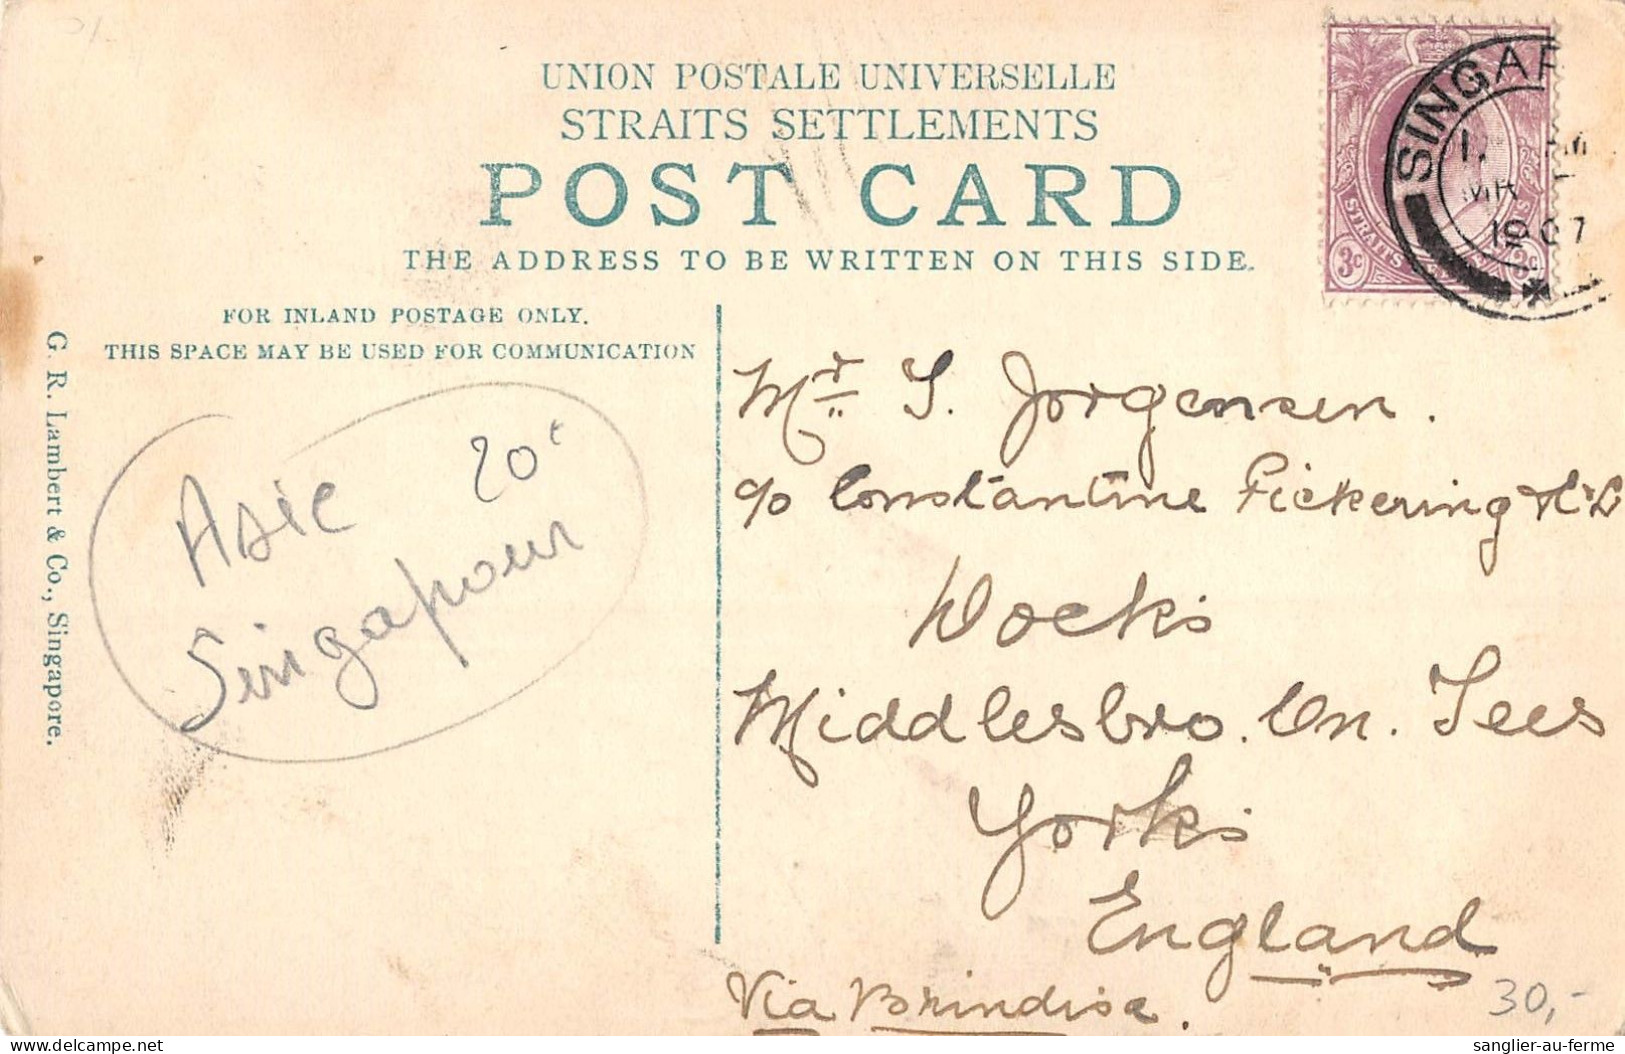 UNION POSTALE UNIVERSELLE
STRAITS SETTLEMENTS
POST CARD
THE ADDRESS TO BE WRITTEN ON THIS SIDE.
FOR INLAND POSTAGE ONLY.
THIS SPACE MAY BE USED FOR COMMUNICATION
G. R. Lambert & Co., Singapore.
Asie 20c
Singapour
STRAITS
3c 3c
SINGAP
MR
1907
Mr. J. Jorgensen.
c/o Constantine Pickering & Co
Docks
Middlesbro. On. Tees
Yorks
England
Via Brindisi.
30,-
sanglier-au-ferme